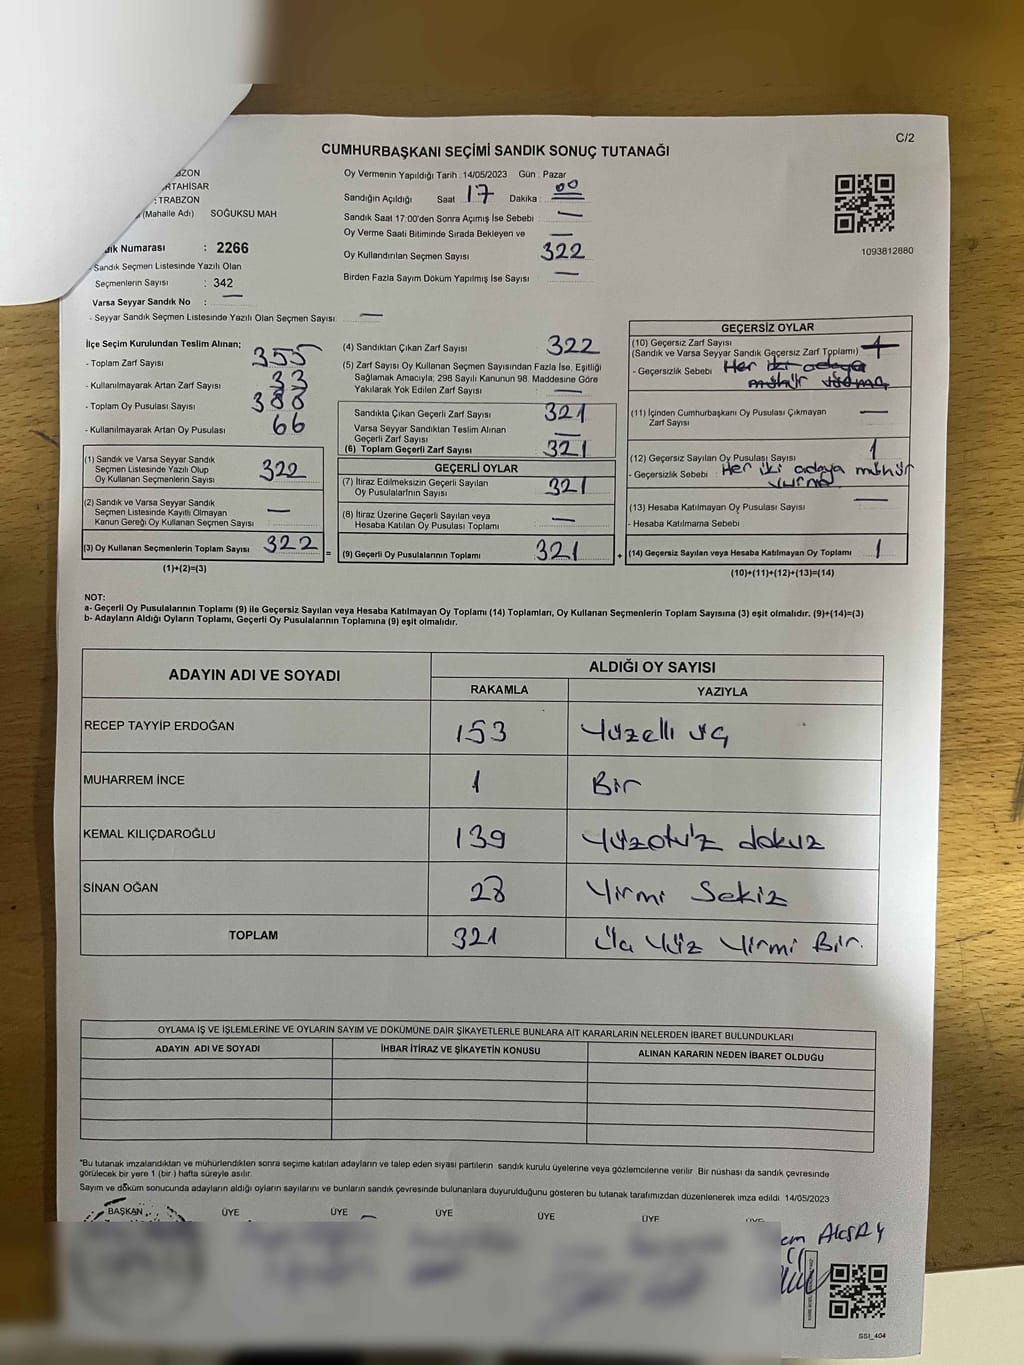 C/2
CUMHURBAŞKANI SEÇİMİ SANDIK SONUÇ TUTANAĞI
BZON
RTAHİSAR
: TRABZON
(Mahalle Adı) SOĞUKSU MAH
Numarası : 2266
- Sandık Seçmen Listesinde Yazılı Olan
Seçmenlerin Sayısı : 342
Varsa Seyyar Sandık No : —
- Seyyar Sandık Seçmen Listesinde Yazılı Olan Seçmen Sayısı: —
Oy Vermenin Yapıldığı Tarih : 14/05/2023 Gün : Pazar
Sandığın Açıldığı Saat 17 Dakika : 00
Sandık Saat 17:00'den Sonra Açımış İse Sebebi —
Oy Verme Saati Bitiminde Sırada Bekleyen ve —
Oy Kullandırılan Seçmen Sayısı 322
Birden Fazla Sayım Döküm Yapılmış İse Sayısı —
1093812880
İlçe Seçim Kurulundan Teslim Alınan;
- Toplam Zarf Sayısı 355
- Kullanılmayarak Artan Zarf Sayısı 33
- Toplam Oy Pusulası Sayısı 388
- Kullanılmayarak Artan Oy Pusulası 66
(1) Sandık ve Varsa Seyyar Sandık
Seçmen Listesinde Yazılı Olup
Oy Kullanan Seçmenlerin Sayısı 322
(2) Sandık ve Varsa Seyyar Sandık
Seçmen Listesinde Kayıtlı Olmayan
Kanun Gereği Oy Kullanan Seçmen Sayısı —
(3) Oy Kullanan Seçmenlerin Toplam Sayısı 322
(1)+(2)=(3)
(4) Sandıktan Çıkan Zarf Sayısı 322
(5) Zarf Sayısı Oy Kullanan Seçmen Sayısından Fazla İse, Eşitliği
Sağlamak Amacıyla; 298 Sayılı Kanunun 98. Maddesine Göre
Yakılarak Yok Edilen Zarf Sayısı —
Sandıkla Çıkan Geçerli Zarf Sayısı 321
Varsa Seyyar Sandıktan Teslim Alınan
Geçerli Zarf Sayısı —
(6) Toplam Geçerli Zarf Sayısı 321
GEÇERLİ OYLAR
(7) İtiraz Edilmeksizin Geçerli Sayılan
Oy Pusulalarının Sayısı 321
(8) İtiraz Üzerine Geçerli Sayılan veya
Hesaba Katılan Oy Pusulası Toplamı —
= (9) Geçerli Oy Pusulalarının Toplamı 321
GEÇERSİZ OYLAR
(10) Geçersiz Zarf Sayısı
(Sandık ve Varsa Seyyar Sandık Geçersiz Zarf Toplamı) 1
- Geçersizlik Sebebi Her iki adaya
mühür
(11) İçinden Cumhurbaşkanı Oy Pusulası Çıkmayan
Zarf Sayısı —
(12) Geçersiz Sayılan Oy Pusulası Sayısı 1
- Geçersizlik Sebebi : Her iki adaya mühür
vurma
(13) Hesaba Katılmayan Oy Pusulası Sayısı —
- Hesaba Katılmama Sebebi
+ (14) Geçersiz Sayılan veya Hesaba Katılmayan Oy Toplamı 1
(10)+(11)+(12)+(13)=(14)
NOT:
a- Geçerli Oy Pusulalarının Toplamı (9) ile Geçersiz Sayılan veya Hesaba Katılmayan Oy Toplamı (14) Toplamları, Oy Kullanan Seçmenlerin Toplam Sayısına (3) eşit olmalıdır. (9)+(14)=(3)
b- Adayların Aldığı Oyların Toplamı, Geçerli Oy Pusulalarının Toplamına (9) eşit olmalıdır.
ADAYIN ADI VE SOYADI ALDIĞI OY SAYISI
RAKAMLA YAZIYLA
RECEP TAYYİP ERDOĞAN 153 Yüzelli üç
MUHARREM İNCE 1 Bir
KEMAL KILIÇDAROĞLU 139 Yüzotuz dokuz
SİNAN OĞAN 28 Yirmi Sekiz
TOPLAM 321 Üç Yüz Yirmi Bir.
OYLAMA İŞ VE İŞLEMLERİNE VE OYLARIN SAYIM VE DÖKÜMÜNE DAİR ŞİKAYETLERLE BUNLARA AİT KARARLARIN NELERDEN İBARET BULUNDUKLARI
ADAYIN ADI VE SOYADI İHBAR İTİRAZ VE ŞİKAYETİN KONUSU ALINAN KARARIN NEDEN İBARET OLDUĞU
*Bu tutanak imzalandıktan ve mühürlendikten sonra seçime katılan adayların ve talep eden siyasi partilerin sandık kurulu üyelerine veya gözlemcilerine verilir. Bir nüshası da sandık çevresinde
görülecek bir yere 1 (bir) hafta süreyle asılır.
Sayım ve döküm sonucunda adayların aldığı oyların sayılarını ve bunların sandık çevresinde bulunanlara duyurulduğunu gösteren bu tutanak tarafımızdan düzenlenerek imza edildi 14/05/2023
BAŞKAN ÜYE ÜYE ÜYE ÜYE ÜYE ÜYE
em AKSAY
SSI_404